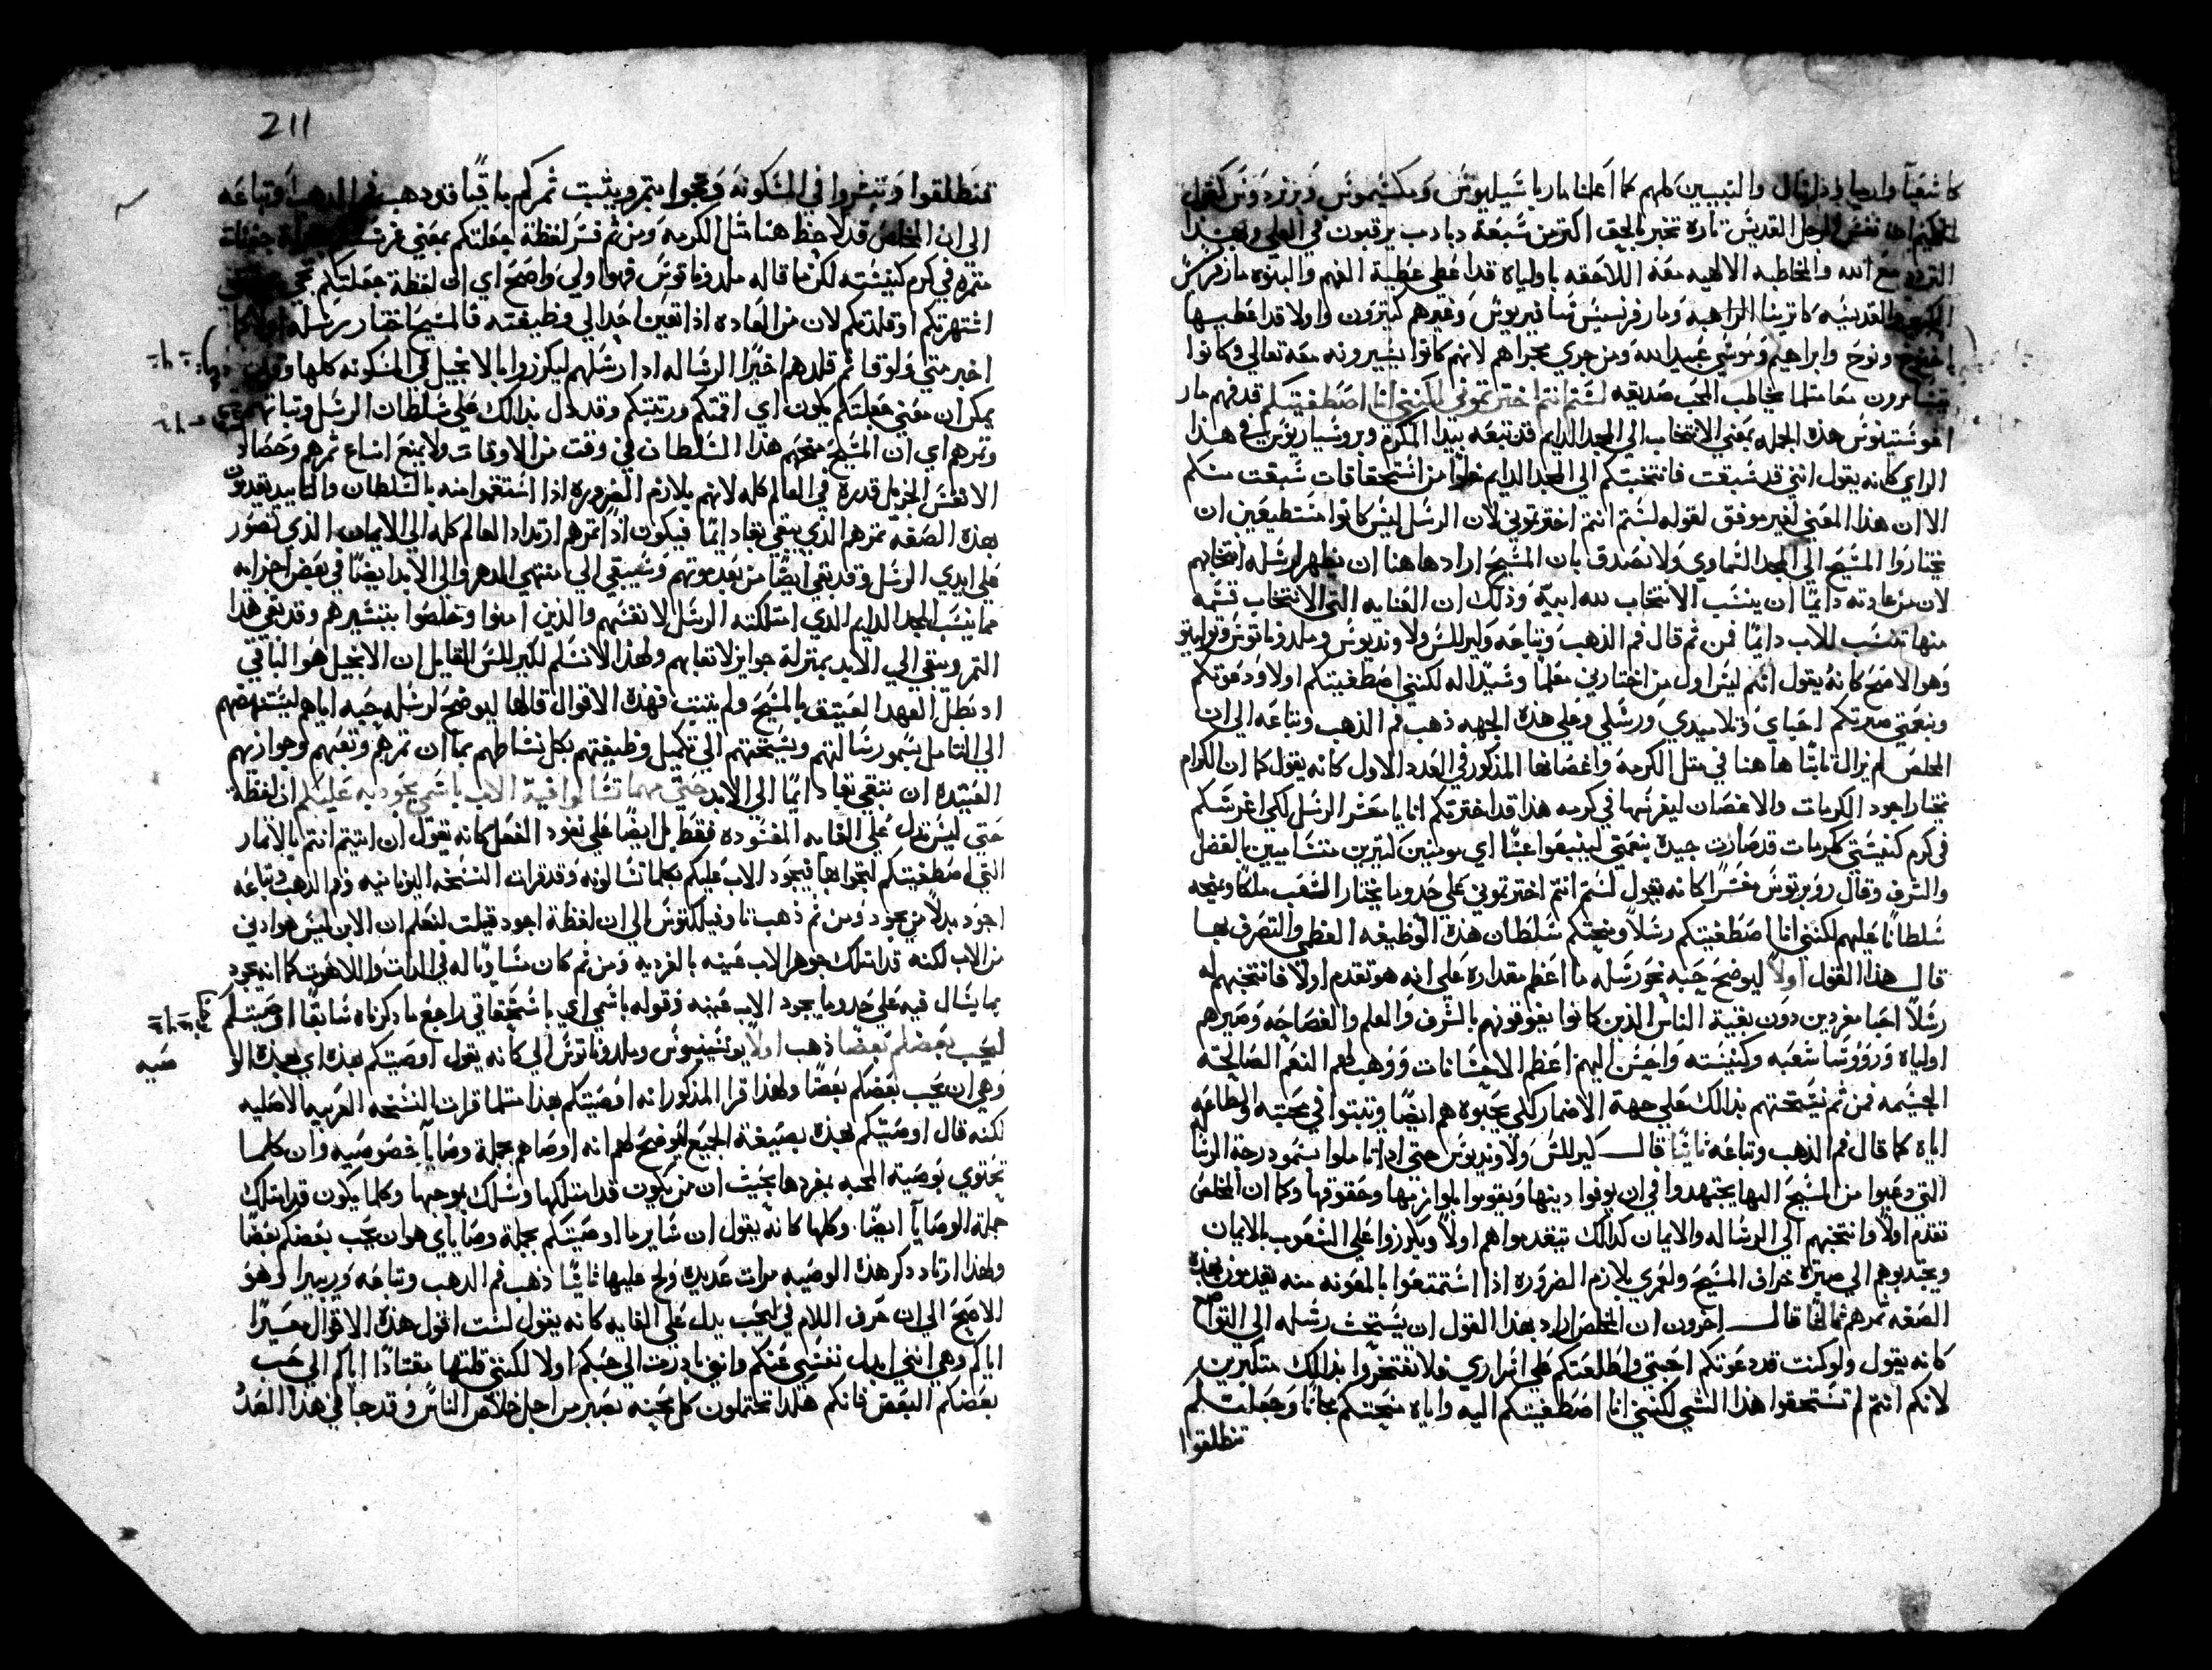 كاشعيا وارميا ودانيال والنبيين كلهم كما اعلنا مار باسيليوس ومكسيموس وبرنردوس كقول
الحكيم ان نفس الرجل القديس تارة تخبر بالحق اكتر من سبعة دبادب يرقبون في العلي ولهذا
مع الله والمخاطبه الالهيه معه اللاحقه باولياه قد اعطي عطية الفهم والنبوه مار فرنسيس
والقديسه كاترينا الراهبه ومار فرنسيس كسافيريوس وغيرهم كتيرون واولا قد اعطيها
اخنوخ ونوح وابراهيم وموسي عبيد الله ومن جري مجراهم لانهم كانوا يسيرونه معه تعالي وكانوا
يتسامرون معا متلما يخاطب المحب صديقه لستم انتم اخترتموني لكنني انا اصطفيتكم قد فهم مار
اغوستينوس هذه الجمله بمعني الانتخاب الي المجد الدايم قد تبعه بيدا المكرم وبروسياريوس في هذا
الراي كانه يقول انني قد سبقت فانتخبتكم الي المجد الدايم خلوا من استحقاقات سبقت منكم
الا ان هذا المعني لغير موفق لقوله لستم انتم اخترتموني لان الرسل ليس كانوا مستطيعين ان
يختاروا المسيح الي المجد السماوي ولا نصدق بان المسيح اراد ها هنا ان يظهر لرسله انتخابهم
لان من عادته دايما ان ينسب الانتخاب لله ابيه وذلك ان العنايه التي الانتخاب قسمة
منها تنسب للاب دايما فمن ثم قال فم الذهب وتباعه وكيرللس ولاونديوس وملدوناتوس وتوليتو
وهو الاصح كانه يقول انكم ليس اول من اختارني معلما وسيدا له لكنني اصطفيتكم اولا ودعوتكم
وبنعمتي صيرتكم احباي وتلاميدي ورسلي وعلي هذه الجهه ذهب فم الذهب وتباعه الي ان
المخلص لم يزال تابتا ها هنا في متل الكرمة واغصانها المذكور في العدد الاول كانه يقول كما ان الكرام
يختار اجود الكرمات والاغصان ليغرسها في كرمه هذا قد اخترتكم انا يا معشر الرسل لكي اغرسكم
في كرم كنيستي ككرمات قد صارت جيدة بنعمتي لينبعوا عنبا اي مومنين كتيرين متساميين بالفضل
والشرف وقال روبرتوس مفسرا كانه يقول لستم انتم اخترتموني علي حدوما يختار الشعب ملكا ويمنحه
سلطانا عليهم لكنني انا اصطفيتكم رسلا ومنحتكم سلطان هذه الوظيفه العظمي والتصرف بها
قال هذا القول اولا ليوضح حبه نحو رسله ما اعظم مقداره علي انه هو تقدم اولا فانتخبهم له
رسلا احبا مفردين دون بقية الناس الذين كانوا يفوقونهم بالشرف والعلم والفصاحه وصيرهم
اولياه ورووسا شعبه وكنيسته واحسن اليهم اعظم الاحسانات ووهب لهم النعم الصالحة
الجسيمه فمن ثم يستحتهم بذالك علي جهة الاضمار لكي يحبوه هم ايضا ويتبتوا في محبته واطاعتهم
اياه كما قال فم الذهب وتباعه ثانيا قال كيرللس ولاونديوس حتي ادا تاملوا سمو درجة الرسالة
التي دعيوا من المسيح اليها يجتهدوا في ان يوفوا دينها ويقوموا بلوازمها وحقوقها وكما ان المخلص
تقدم اولا وانتخبهم الي الرساله والايمان كدالك يتقدموا هم اولا ويكرزوا علي الشعوب بالايمان
ويجتدبوهم الي صيرة خراف المسيح ولعمري بلازم الضروره اذا استمتعوا بالمعونه منه يقدمون بهذه
الصفه تمرهم ثالثا قال اخرون ان المخلص اراد بهذا القول ان يستحت رسله الي التواضع
كانه يقول ولو كنت قد دعوتكم احبتي واطلعتكم علي اسراري فلا تفتخروا بذالك متكبرين
لانكم انتم لم تستحقوا هذا الشي لكنني انا اصطفيتكم اليه واياه منحتكم مجانا وجعلتكم
تنطلقوا
211
تنطلقوا وتبشروا في المسكونه وتجوا بتمر ويتبت تمركم باقيا فقد ذهب فم الدهب وتباعه
الي ان المخلص قد لاحظ هنا متل الكرمه ومن ثم فسر لفظة جعلتكم بمعني غرستكم
متمره في كرم كنيسته لكن ما قاله ملدوناتوس فهو اولي واصح اي ان لفظة جعلتكم
اشهرتكم او قلدتكم لان من العاده اذا تعين احدا الي وظيفته فالمسيح اختار رسله اولا كما
اخبر متي ولوقا ثم قلدهم اخيرا الرساله ادا رسلهم ليكرزوا بالانجيل في المسكونه كلها
يمكن ان معني جعلتكم يكون اي اقمتكم ورتبتكم وقد دل بدالك علي سلطان الرسل وتباتهم
وتمرهم اي ان المسيح منحهم هذا السلطان في وقت من الاوقات ولا يمنع اتساع تمرهم وحصاد
الانفس الجزيل قدره في العالم كله لانهم بلازم الضروره اذا استعموا منه بالسلطان والتاييد يقدمون
بهذه الصفة تمرهم الذي يبقي بقا دايما فيكون اذا تمرهم ارتداد العالم كله الي الايمان الذي تصور
علي ايدي الرسل وقد بقي ايضا من بعد موتهم وسيبقي الي منتهي الدهر والي الابد ايضا في بعض اجزايه
مما ينسب المجد الدايم الدي امتلكته الرسل لانفسهم والذين امنوا وخلصوا بتبشيرهم وقد بقي هذا
التمر ويبقي الي الابد بمنزلة جوايز لاتعابهم ولهذا لا نسلم لكيرللس القايل ان الانجيل هو الباقي
اد تطل العهد العتيق بالمسيح ولم يتبت فهذه الاقوال قالها ليوضح لرسله حبه اياهم ليستنهضهم
الي التامل بسمو رسالتهم ويستحتهم الي تكميل وظيفتهم بكل نشاطهم بما ان تمرهم وتعبهم وجوازيهم
العتيده ان تبقي بقا دايما الي الابد حتي مهما تسالوا فيه الاب باسمي يجود به عليكم ان لفظة
حتي ليس تدل علي الغايه المقصوده فقط بل ايضا علي نفود الفعل كانه يقول ان اتيتم انتم بالاتمار
التي اصطفيتكم لتجوا بها فيجود الاب عليكم بكلما تسالونه وقد قرات النسخه اليونانيه وفم الدهب وتباعه
اجود بدلا من يجود ومن ثم ذهب تاوفيلكتوس الي ان لفظة اجود قيلت لنعلم ان الابن ليس هو ادني
من الاب لكنه قد امتلك جوهر الاب عينه بالفرديه ومن ثم كان مساويا له في الدات واللاهوت كما انه يجود
بما يسال فيه علي حدوما يجود الاب عينه وقوله باسمي اي باستحقاقي راجع ما دكرناه سابقا اوصيتكم
ليحب بعضكم بعضا ذهب اولا يونسينيوس وملدوناتوس الي كانه يقول اوصيتكم بهذه اي بهذه الو
صيه
وهي ان يحب بعضكم بعضا ولهذا قرا المذكور انه اوصيتكم بهذا متلما قرات النسخه العربيه الاصليه
لكنه قال اوصيتكم بهذه بصيغة الجمع ليوضح لهم انه اوصاهم بجملة وصايا خصوصيه وان كلما
تحتوي بوصية المحبه بمفردها بحيت ان من يكون قد امتلكها وسلك بموجبها وكلما يكون قد امتلك
جملة الوصايا ايضا وكلها كانه يقول ان ساير ما اوصيتكم بجملة وصاياي هو ان يحب بعضكم بعضا
ولهذا ارتاد دكر هذه الوصيه مرات عديده ولج عليها ثانيا ذهب فم الدهب وتباعه وريبيرا وهو
الاصح الي ان حرف اللام في ليحب يدل علي الغايه كانه يقول لست اقول هذه الاقوال معيرا
اياكم وهي انني ابدل نفسي عنكم وانني بادرت الي حبكم اولا لكنني قلتها مقتادا اياكم الي حب
بعضكم البعض فانكم هكدا تحتملون كل محنه بصبر من اجل خلاص الناس وقد جا في هذا العدد